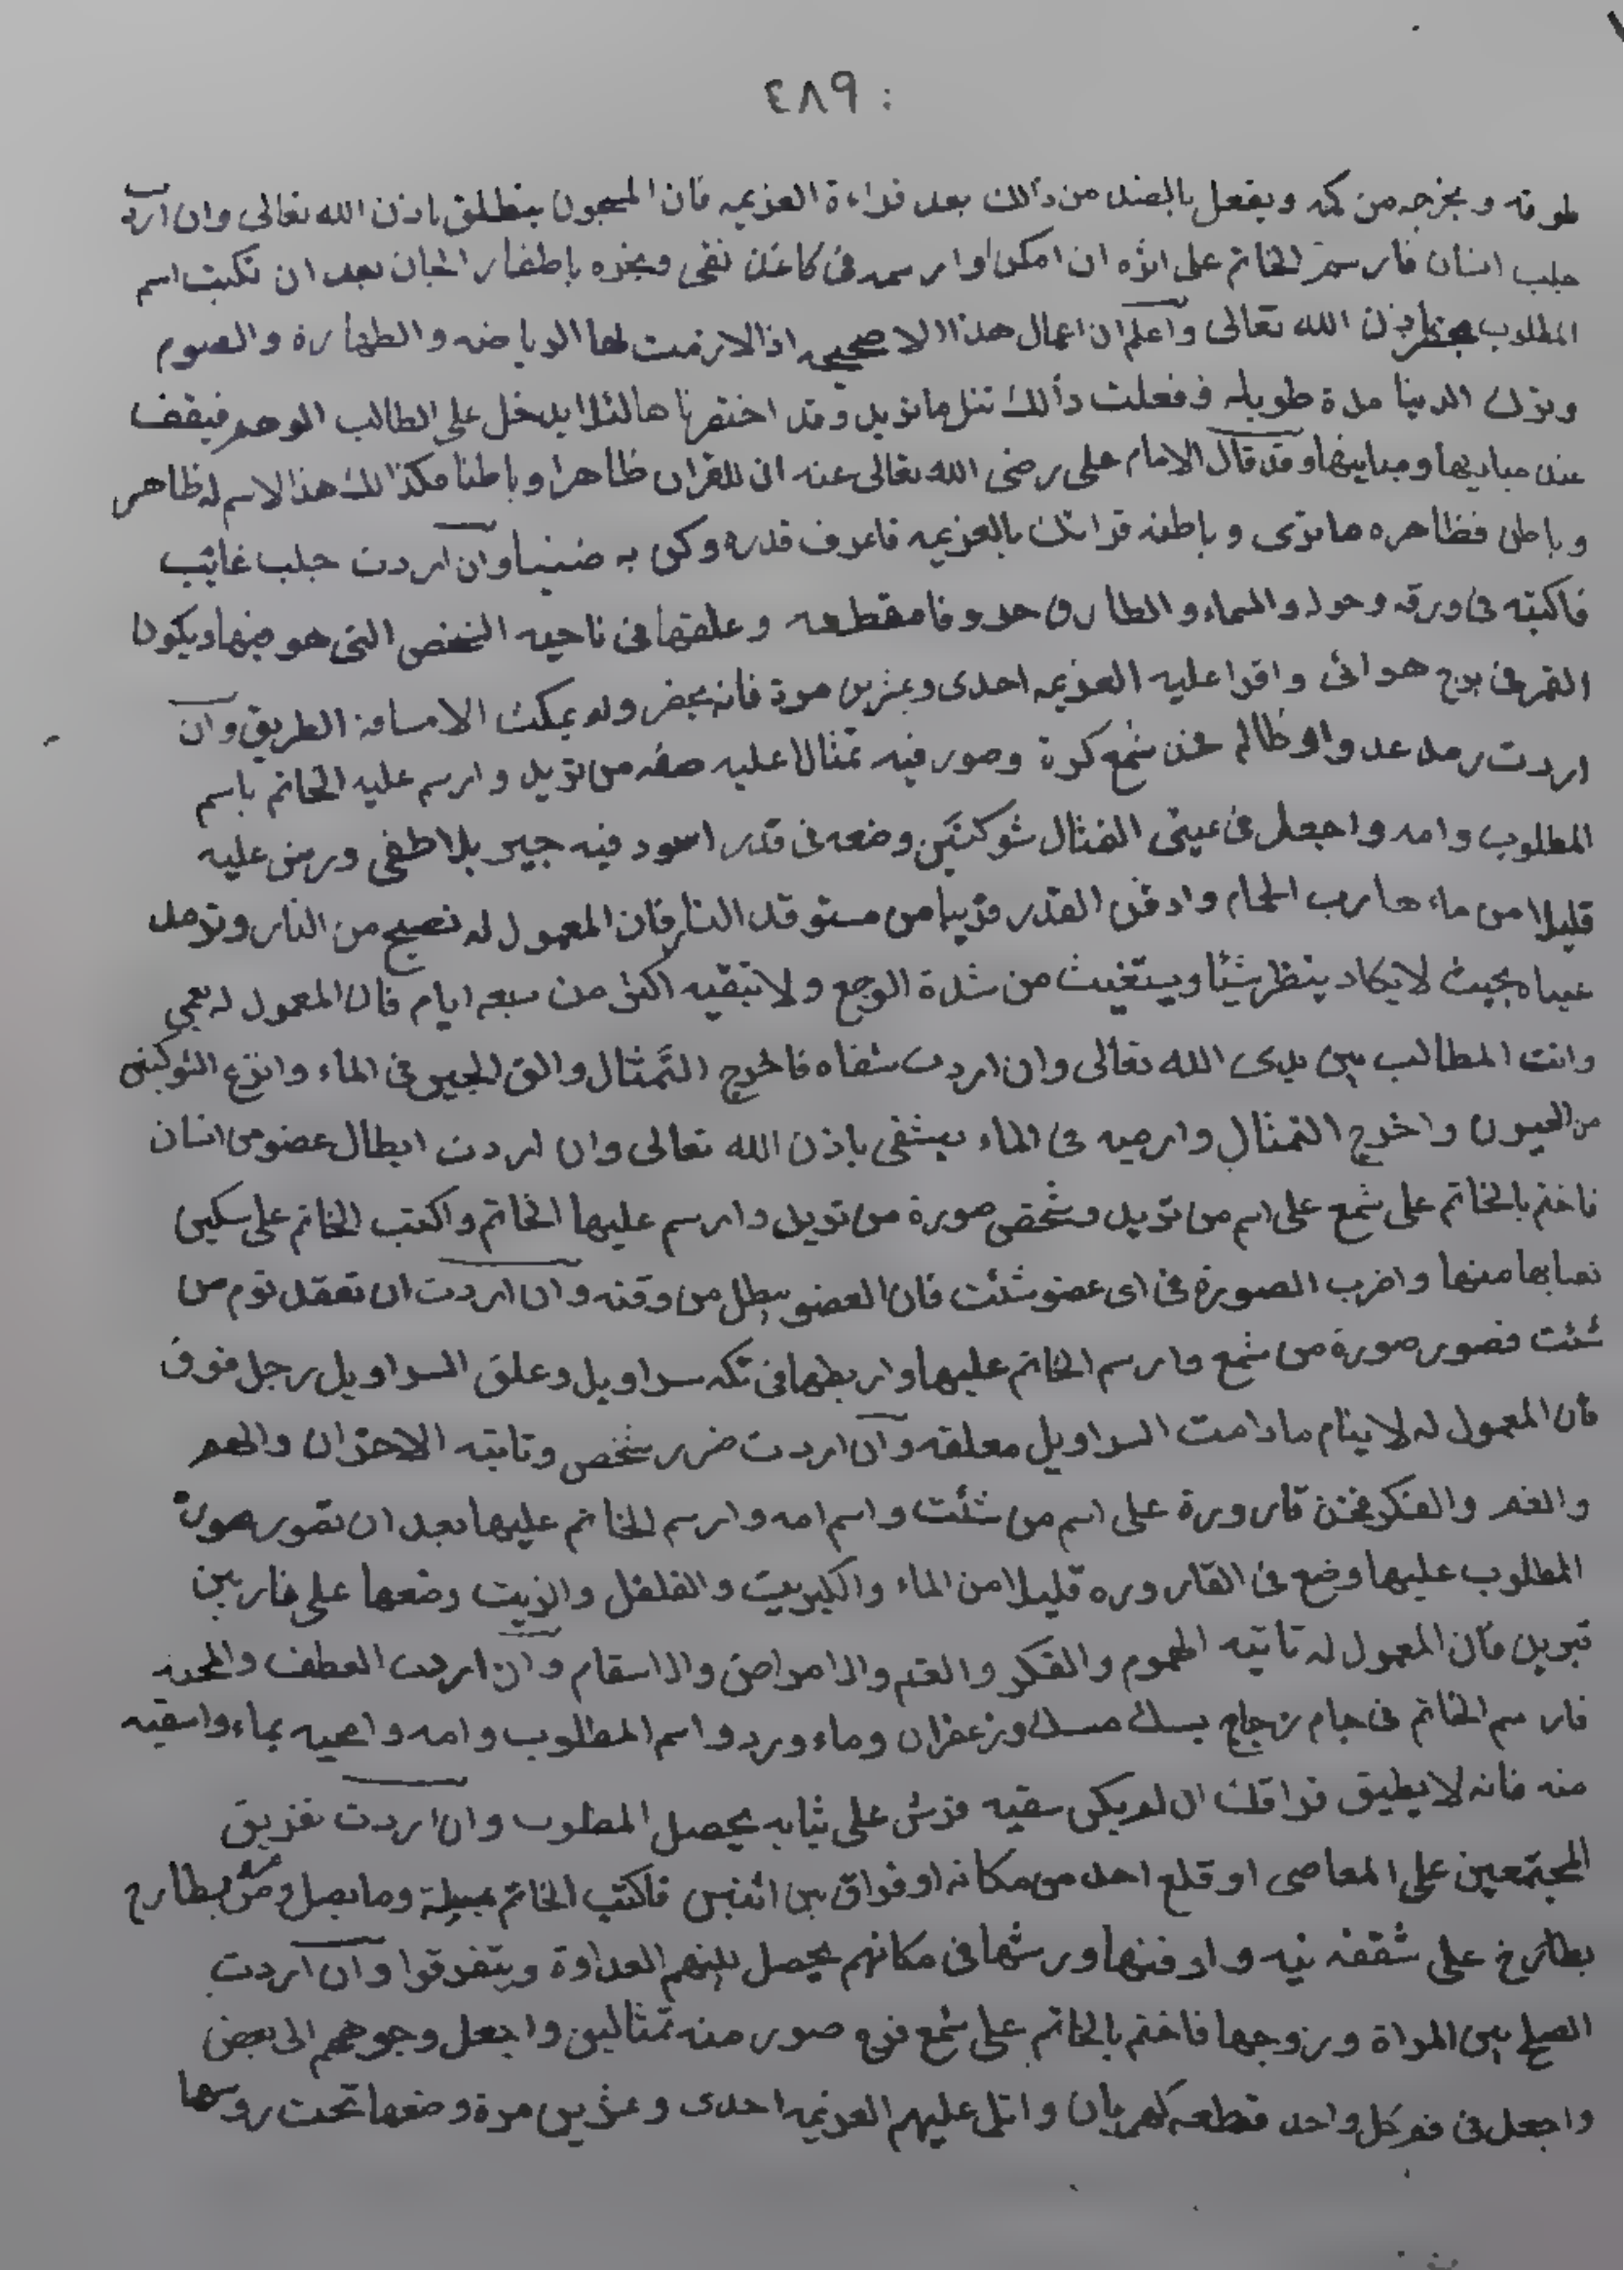 : ٤٨٩
طوقه ويخرجه من كمه ويفعل بالضد من ذالك بعد قراءة العزيمه فان المسجون ينطلق باذن الله تعالى وان اردت
جلب انسان فارسم الخاتم على اثره ان امكن اوارسمه فى كاغد نقى وبخره باظفار الجان بعد ان تكتب اسم
المطلوب باذن الله تعالى واعلم ان اعمال هذا الا صحيحه اذا لازمت لها الرياضه والطهارة والصوم
وترك الدنيا مدة طويله وفعلت ذالك تنل ماتريد وقد اختصرناها لئلا يدخل على الطالب الوهم فيقف
عند مباديها ومباينها وقد قال الامام على رضى الله تعالى عنه ان للقران ظاهرا وباطنا فكذالك هذا الاسم له ظاهر
وباطن فظاهره ماترى وباطنه قراتك بالعزيمه فاعرف قدره وكن به ضنينا وان اردت جلب غائب
فاكتبه فى ورقه وحوله والسماء والطارق حروفا مقطعه وعلقها فى ناحيه الشخص التى هو فيها ويكون
القمر فى برج هوائى واقرا عليه العزيمه احدى وعشرين مرة فانه يحضر ولم يمكث الا مسافة الطريق وان
اردت رمد عدو او ظالم فخذ شمع كرة وصور فيه تمثالا عليه صفه من تريد وارسم عليه الخاتم باسم
المطلوب وامه واجعل فى عينى التمثال شوكتين وضعه فى قدر اسود فيه جير بلا طفى ورش عليه
قليلا من ماء هارب الحمام وادفن القدر قريبا من مستوقد النار فان المعمول له تصيح من النار وترمد
عيناه بحيث لايكاد ينظر شيئا ويستغيث من شدة الوجع ولا تبقيه اكثر من سبعه ايام فان المعمول له يعمى
وانت المطالب بين يدى الله تعالى وان اردت شفاه فاخرج التمثال والق الجير فى الماء وانزع الشوكتين
من العيون واخرج التمثال وارميه فى الماء يشفى باذن الله تعالى وان اردت ابطال عضو من انسان
فاختم بالخاتم على شمع على اسم من تريد وشخص صورة من تريد وارسم عليها الخاتم واكتب الخاتم على سكين
نصابها منها واضرب الصورة فى اى عضو شئت فان العضو يبطل من وقته وان اردت ان تعقد نوم من
شئت فصور صورة من شمع وارسم الخاتم عليها واربطها فى تكه سراويل وعلق السراويل برجل فوق
فان المعمول له لاينام مادامت السراويل معلقه وان اردت ضرر شخص وتاتيه الاحزان والهم
والغم والفكر فخذ قارورة على اسم من شئت واسم امه وارسم الخاتم عليها بعد ان تصور صورة
المطلوب عليها وضع فى القاروره قليلا من الماء والكبريت والفلفل والزيت وضعها على نار بين
قبرين فان المعمول له تاتيه الهموم والفكر والغم والامراض والاسقام وان اردت العطف والمحبه
فارسم الخاتم فى جام زجاج بمسك وزعفران وماء ورد واسم المطلوب وامه وامحيه بماء واسقيه
منه فانه لايطيق فراقك ان لم يكن سقيه فرش على ثيابه يحصل المطلوب وان اردت تفريق
المجتمعين على المعاصى او قلع احد من مكانه او فراق بين اثنين فاكتب الخاتم ومايصل
على شقفه نيه وادفنها ورشها فى مكانهم يحصل بينهم العداوة ويتفرقوا وان اردت
الصلح بين المراة وزوجها فاختم بالخاتم على شمع صور منه تمثالين واجعل وجوههم الى بعض
واجعل فى فم كل واحد قطعه كهربان واتل عليهم العزيمه احدى وعشرين مرة وضعها تحت روسها